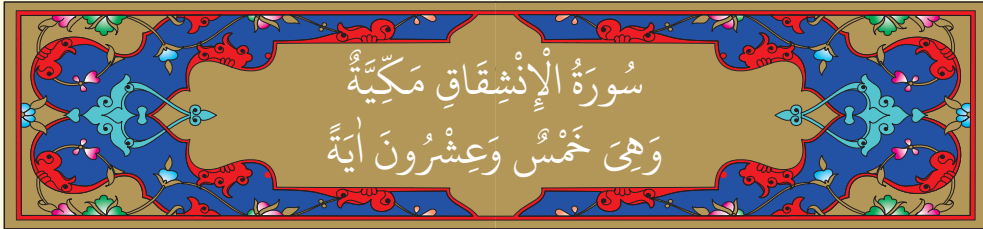 سُورَةُ الْإِنْشِقَاقِ مَكِّيَّةٌ
وَهِىَ خَمْسٌ وَعِشْرُونَ اٰيَةً